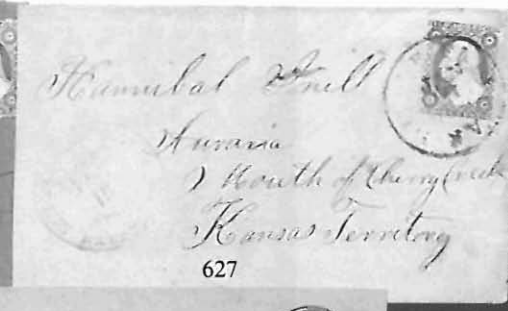 Hannibal
Auraria
Mouth of Cherry Creek
Kansas Territory
627